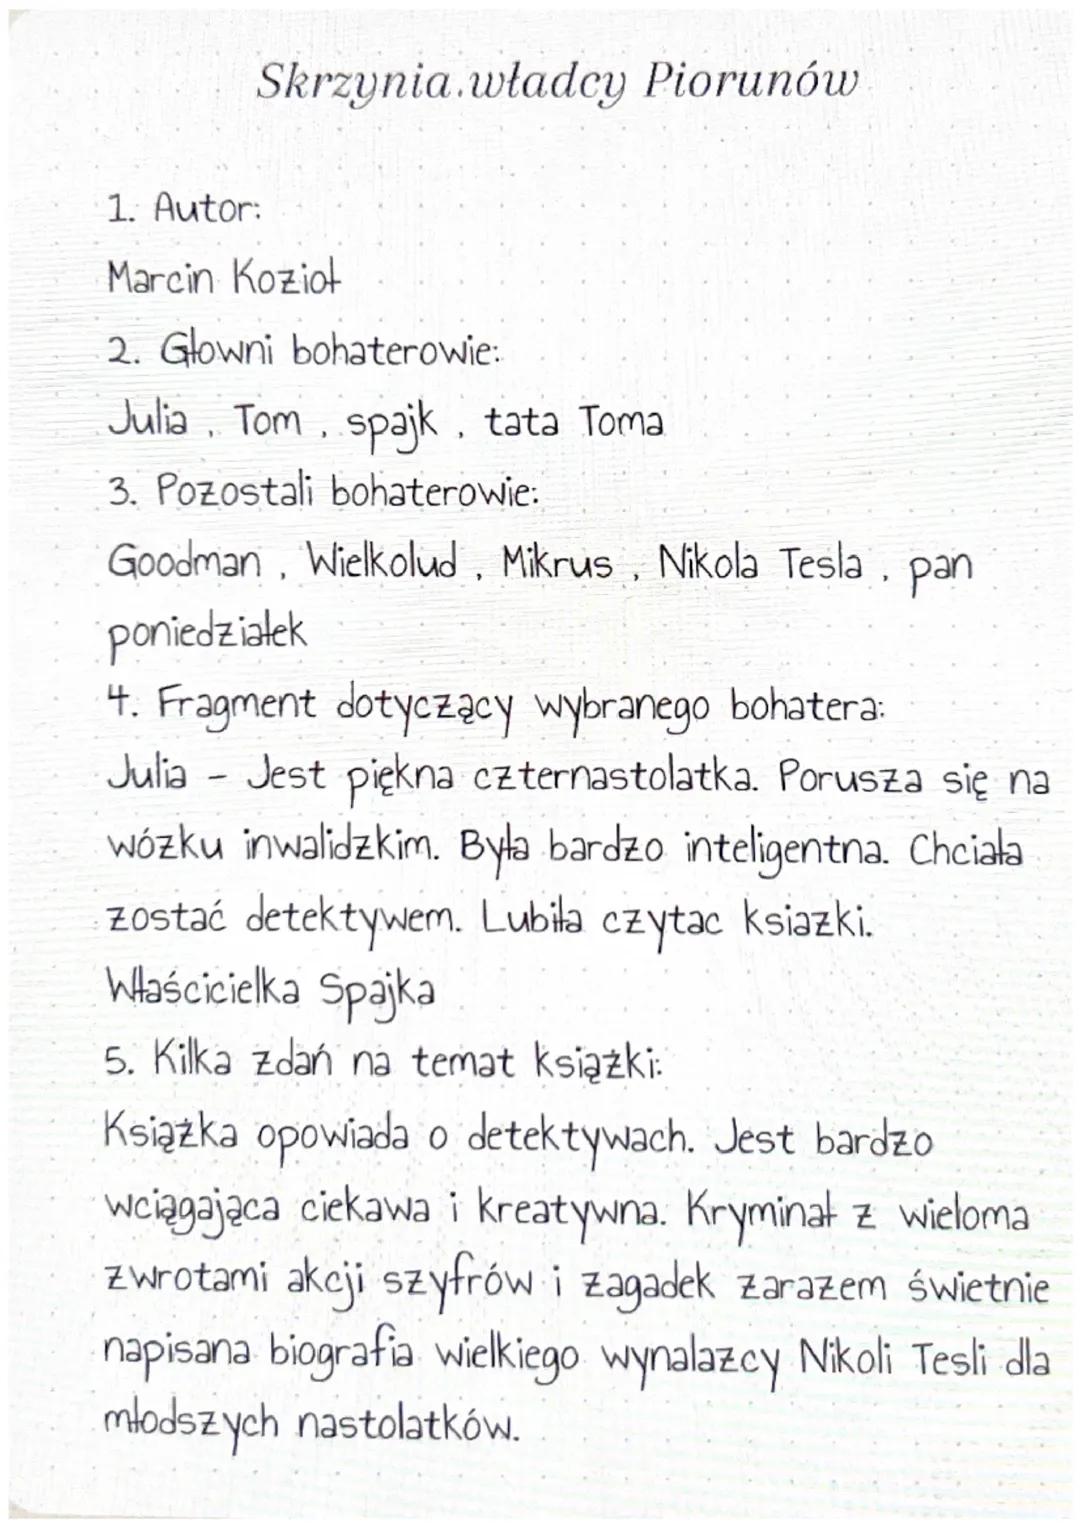 Skrzynia.władcy Piorunów
1. Autor:
Marcin Kozioł
2. Głowni bohaterowie:
Julia, Tom, spajk, tata Toma
3. Pozostali bohaterowie:
Goodman, Wielkolud, Mikrus, Nikola Tesla, pan
poniedziałek
4. Fragment dotyczący wybranego bohatera:
Julia - Jest piękna czternastolatka. Porusza się na
wózku inwalidzkim. Była bardzo inteligentna. Chciała
zostać detektywem. Lubiła czytac ksiazki.
Właścicielka Spajka
5. Kilka zdań na temat książki:
Książka opowiada o detektywach. Jest bardzo
wciągająca ciekawa i kreatywna. Kryminał z wieloma
zwrotami akcji szyfrów i zagadek zarazem świetnie
napisana biografia wielkiego wynalazcy Nikoli Tesli dla
młodszych nastolatków.